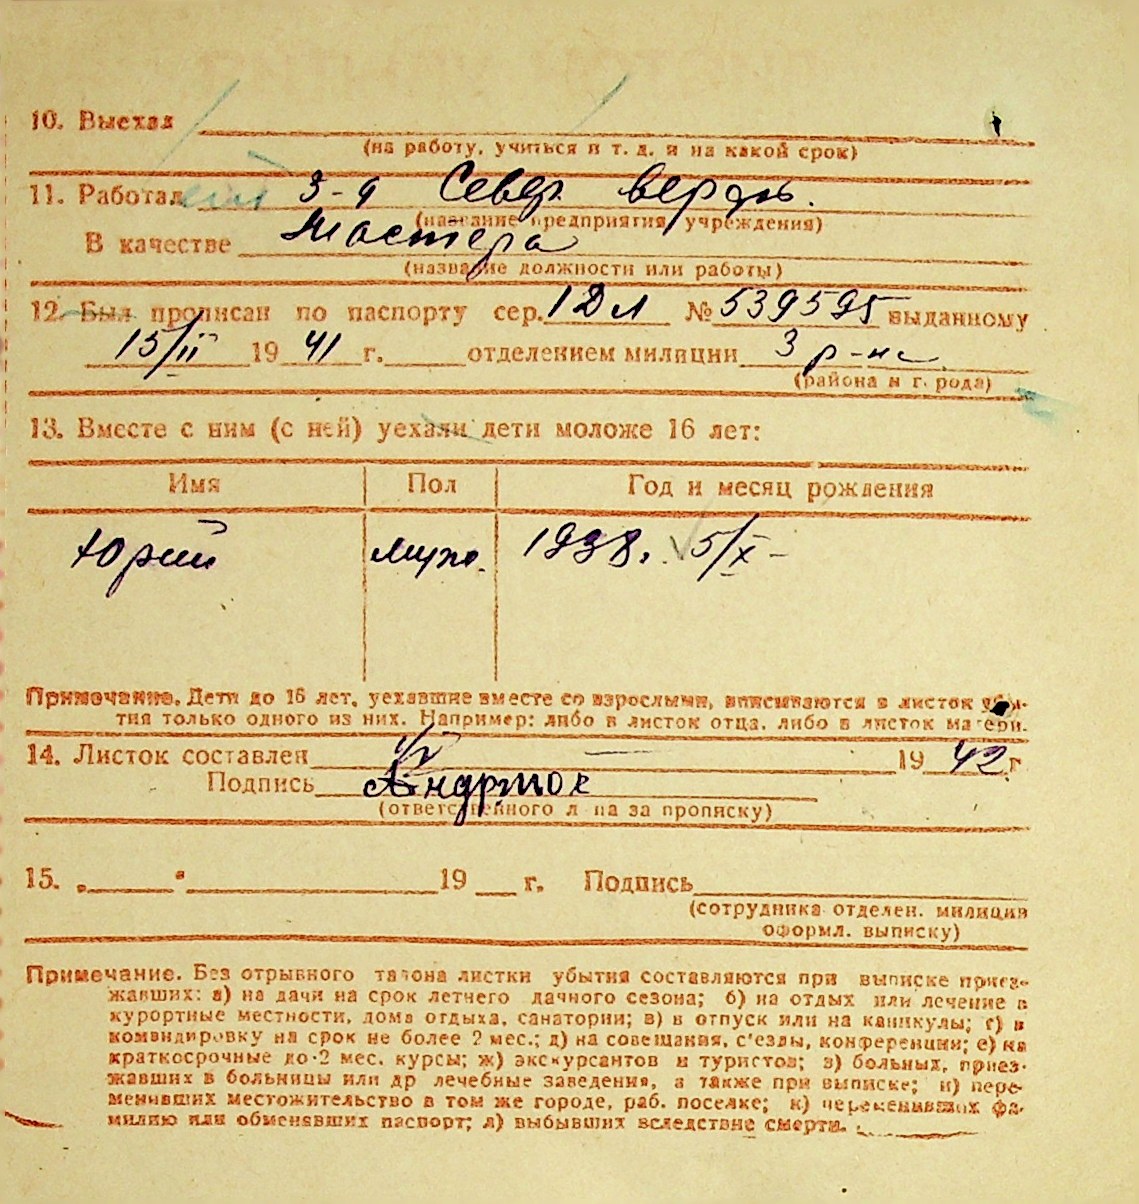 10. Выехал
(на работу, учиться и т. д. и на какой срок)
11. Работал З-д Север верфь.
(название предприятия, учреждения)
В качестве Мастера
(название должности или работы)
12. Был прописан по паспорту сер. 1 Дл № 539595 выданному
15/II 19 41 г. отделением милиции 3 р-на
(района и г. рода)
13. Вместе с ним (с ней) уехали дети моложе 16 лет:
Имя Пол Год и месяц рождения
Юрий муж. 1938г. 5/X-
Примечание. Дети до 16 лет, уехавшие вместе со взрослыми, вписываются в листок убы-
тия только одного из них. Например: либо в листок отца, либо в листок матери.
14. Листок составлен 19 42 г
Подпись
(ответственного л па за прописку)
15. „ “ 19 г. Подпись
(сотрудника отделен. милиции
оформл. выписку)
Примечание. Без отрывного талона листки убытия составляются при выписке приез-
жавших: а) на дачи на срок летнего дачного сезона; б) на отдых или лечение в
курортные местности, дома отдыха, санатории; в) в отпуск или на каникулы; г) в
командировку на срок не более 2 мес.; д) на совещания, с'езды, конференции; е) на
краткосрочные до 2 мес. курсы; ж) экскурсантов и туристов; з) больных, приез-
жавших в больницы или др лечебные заведения, а также при выписке; и) пере-
менивших местожительство в том же городе, раб. поселке; к) переменивших фа-
милию или обменявших паспорт; л) выбывших вследствие смерти.